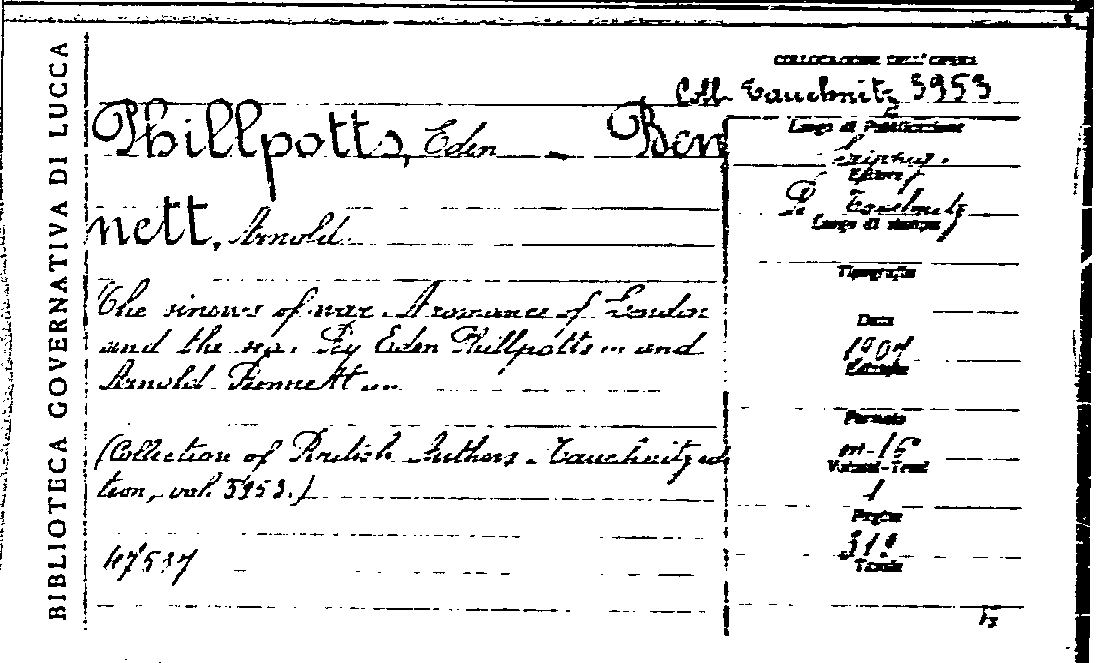 BIBLIOTECA GOVERNATIVA DI LUCCA
COLLOCAZIONE DELL'OPERA
Coll. Tauchnitz 3953
Phillpotts, Eden - Ben
nett, Arnold
The sinews of war. A romance of London
and the sea. By Eden Phillpotts ... and
Arnold Bennett ...
(Collection of British Authors. Tauchnitz edi
tion, vol. 3953.)
47537
Luogo di Pubblicazione
Leipzig.
Editore
B. Tauchnitz
Luogo di stampa
Tipografia
Data
1907
Formato
in-16°
Volumi-Tomi
1
Pagine
Tavole